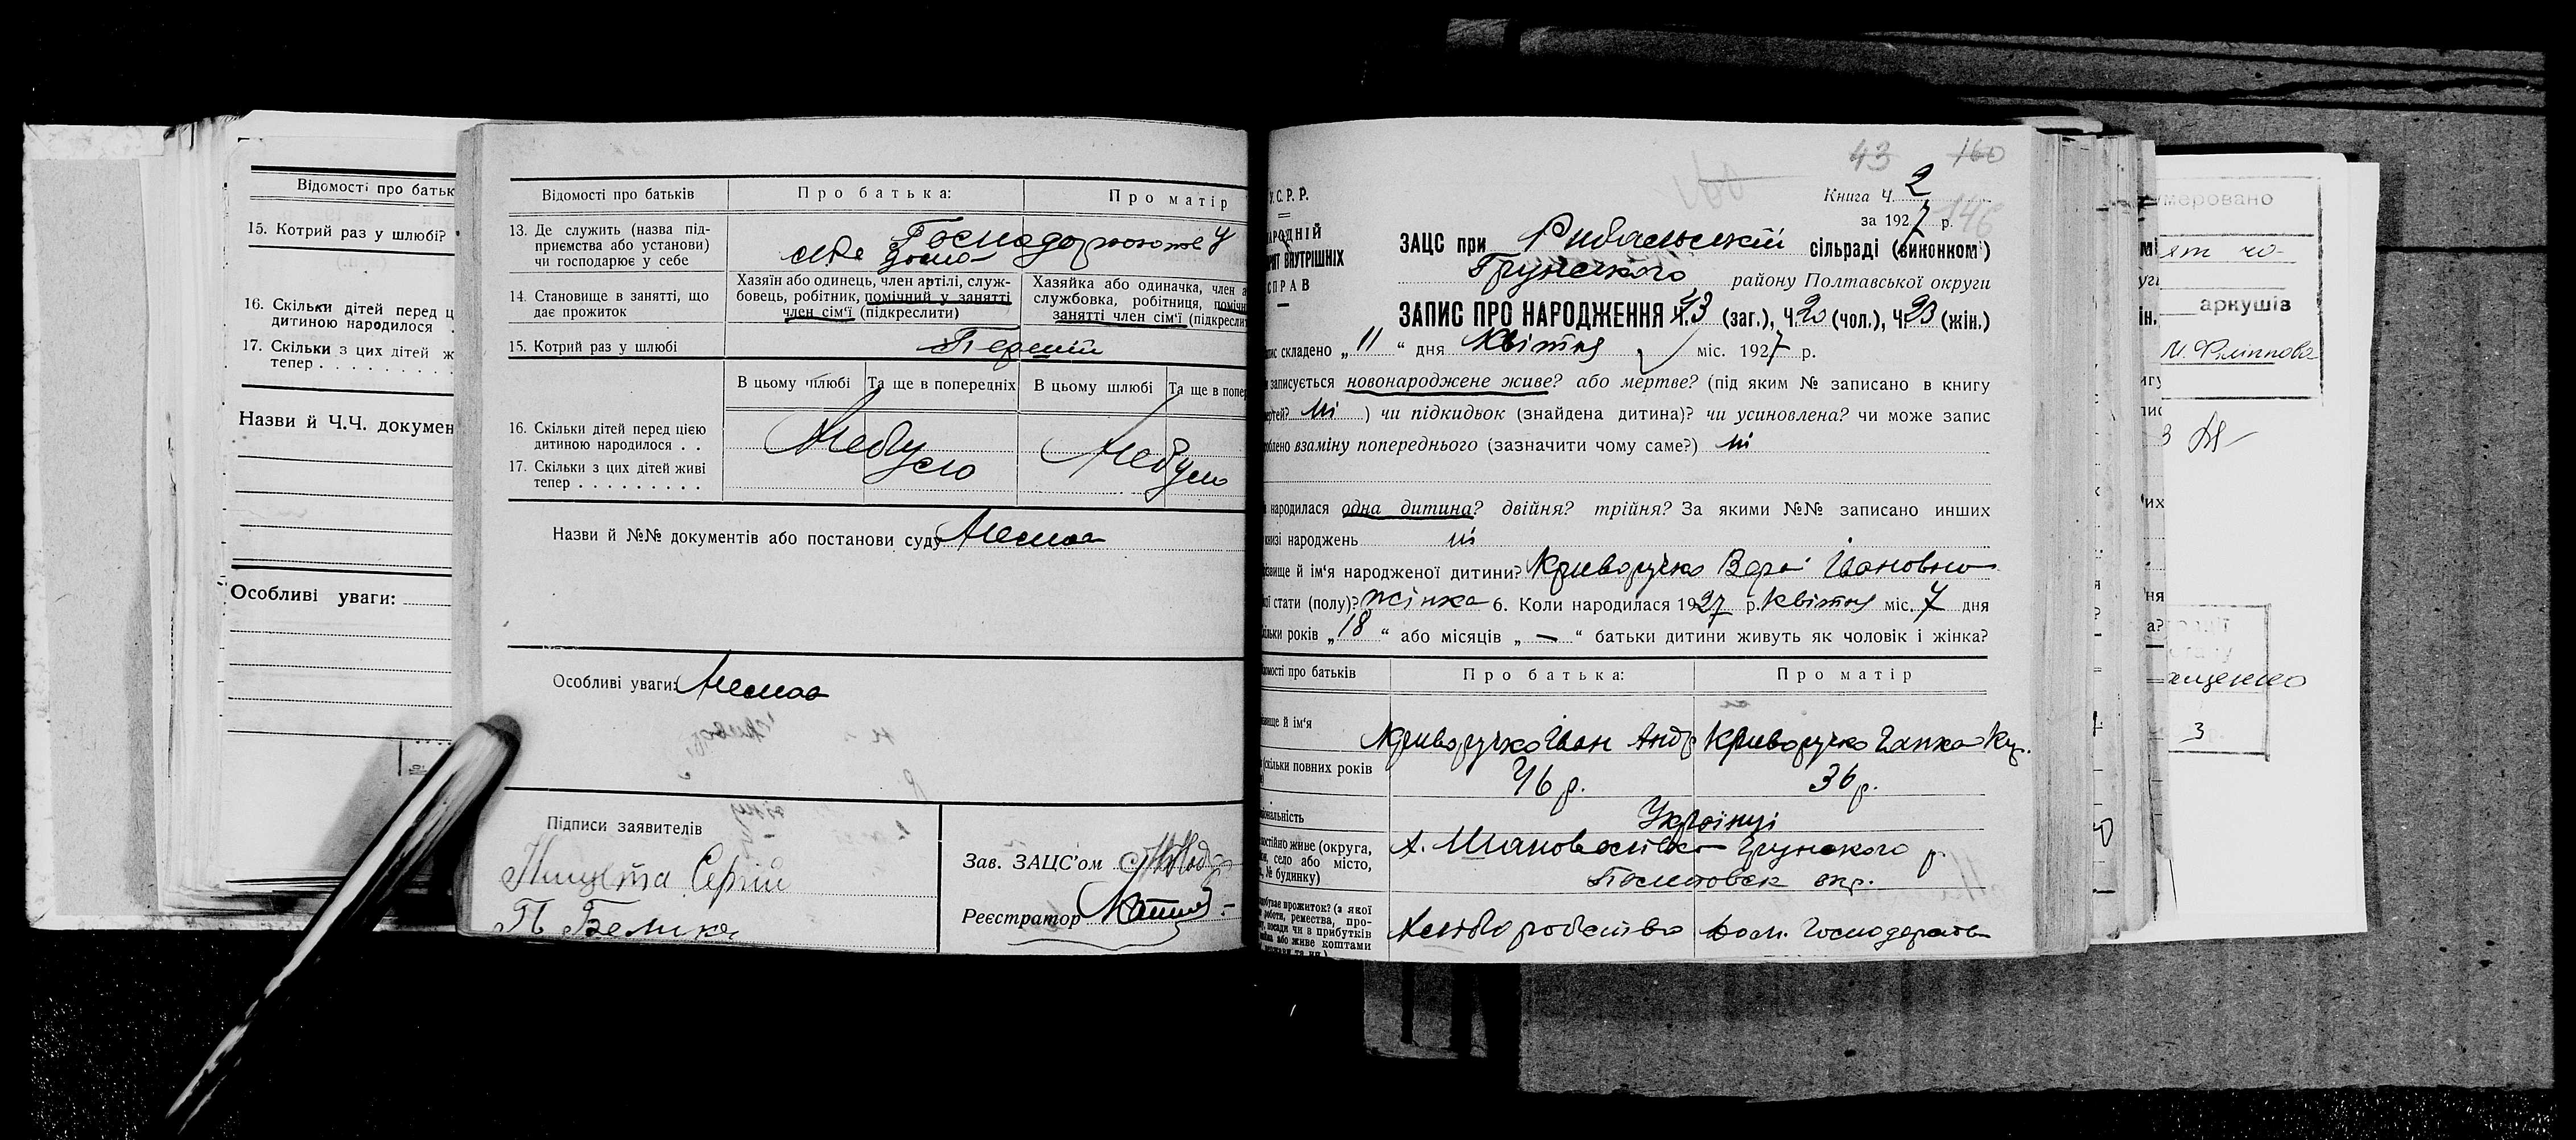 Відомості про батьк
15. Котрий раз у шлюбі?
16. Скільки дітей перед ц
дитиною народилося .
17. Скільки з цих дітей ж
тепер . . . . . . . . .
Назви й Ч.Ч. докумен
Особливі уваги:
Відомості про батьків
Про батька:
Про матір
13. Де служить (назва під-
приємства або установи)
чи господарює у себе
Господарюють у
себе
14. Становище в занятті, що
дає прожиток
Хазяїн або одинець, член артілі, служ-
бовець, робітник, помічний у занятті
член сім'ї (підкреслити)
Хазяйка або одиначка, член а
службовка, робітниця, помічн
занятті член сім'ї (підкресли
15. Котрий раз у шлюбі
Перший
В цьому шлюбі
Та ще в попередніх
В цьому шлюбі
Та ще в попер
16. Скільки дітей перед цією
дитиною народилося . .
17. Скільки з цих дітей живі
тепер . . . . . . . . .
Небуло
Небуло
Назви й №№ документів або постанови суду Нема
Особливі уваги: Нема
Підписи заявителів
Сергій
П Белика
Зав. ЗАЦС'ом
Реєстратор
43 160
Книга Ч. 2
за 1927 р. 146
У.С.Р.Р.
АРОДНІЙ
ВНУТРІШНІХ
СПРАВ
ЗАЦС при Рибальській сільраді (виконком')
Грунського району Полтавської округи
ЗАПИС ПРО НАРОДЖЕННЯ Ч. 43 (заг.), Ч. 20 (чол.), Ч. 23 (жін.)
пис складено „ 11 “ дня Квітня міс. 1927 р.
записується новонароджене живе? або мертве? (під яким № записано в книгу
мертей? ні ) чи підкидьок (знайдена дитина)? чи усиновлена? чи може запис
облено взаміну попереднього (зазначити чому саме?) ні
народилася одна дитина? двійня? трійня? За якими №№ записано инших
книзі народжень ні
звище й ім'я народженої дитини? Криворучко Вера Івановна
ої стати (полу)? жінка 6. Коли народилася 1927 р. квітня міс. 7 дня
кільки років „ 18 “ або місяців „ — “ батьки дитини живуть як чоловік і жінка?
домості про батьків
Про батька:
Про матір
звище й ім'я
Криворучко Іван Андр
Криворучко Гапка Ку.
скільки повних років
46 р.
36 р.
ціональність
Українці
остійно живе (округа,
н, село або місто,
, № будинку)
Грунського р
Полтавск окр.
добуває прожиток? (з якої
роботи, ремества, про-
посади чи в прибутків
або живе коштами
Хліборобство
Дом. Господарство
меровано
аркушів
М. Філіппова
3